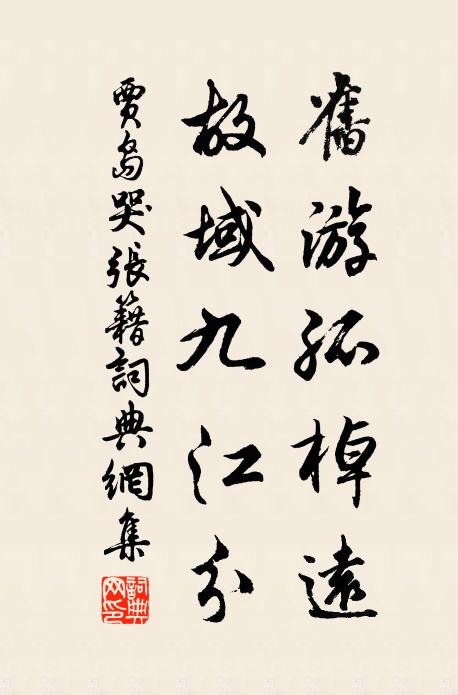 舊游孤棹遠
故域九江分
賈島哭張籍詞典網集
詞典网印